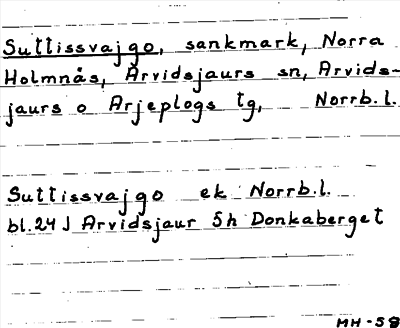 Suttissvajgo, sankmark, Norra
Holmnäs, Arvidsjaurs sn, Arvids-
jaurs o Arjeplogs tg, Norrb.l.
Suttissvajgo ek Norrb.l.
bl.24 J Arvidsjaur 5h Donkaberget
MH-58